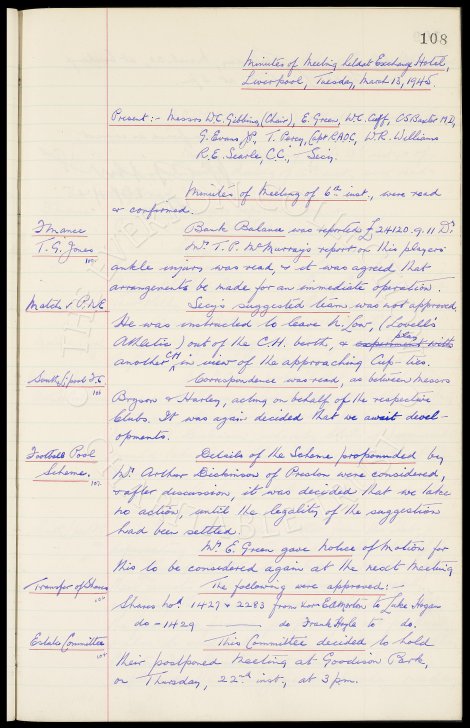 108
Minutes of Meeting held at Exchange Hotel,
Liverpool, Tuesday, March 13, 1945.
Present :- Messrs W.C. Gibbins, (Chair), E. Green, W.C. Cuff, C.S. Baxter M.D,
G. Evans J.P, T. Percy, Capt. RAOC, W.R. Williams
R.E. Searle, C.C., - Secy.
Minutes of Meeting of 6th inst., were read
& confirmed.
Finance Bank Balance was reported £24120.9.11 Dr
T. G. Jones Mr T.P. McMurray's report on this players
109. ankle injury was read, & it was agreed that
arrangements be made for an immediate operation.
Match v. P.N.E Secy's suggested team was not approved,
He was instructed to leave N. Low, (Lovell's
Athletic) out of the C.H. berth, & play
another C.H in view of the approaching Cup-ties.
South L'pool F.C. Correspondence was read, as between Messrs
106 Bryson & Harley, acting on behalf of the respective
Clubs. It was again decided that we await devel-
opments.
Football Pool Details of the Scheme propounded by
Scheme. Mr Arthur Dickinson of Preston were considered,
107. & after discussion, it was decided that we take
no action until the legality of the suggestion
had been settled.
Mr E. Green gave Notice of Motion for
this to be considered again at the next Meeting
Transfer of Shares The following were approved :-
106 Shares Nos 1427 & 2283 from Edmonton to Luke Hogan
do - 1429 do Frank Hoyle to do.
Estate Committee This Committee decided to hold
104 their postponed Meeting at Goodison Park,
on Thursday, 22nd inst, at 3 pm.